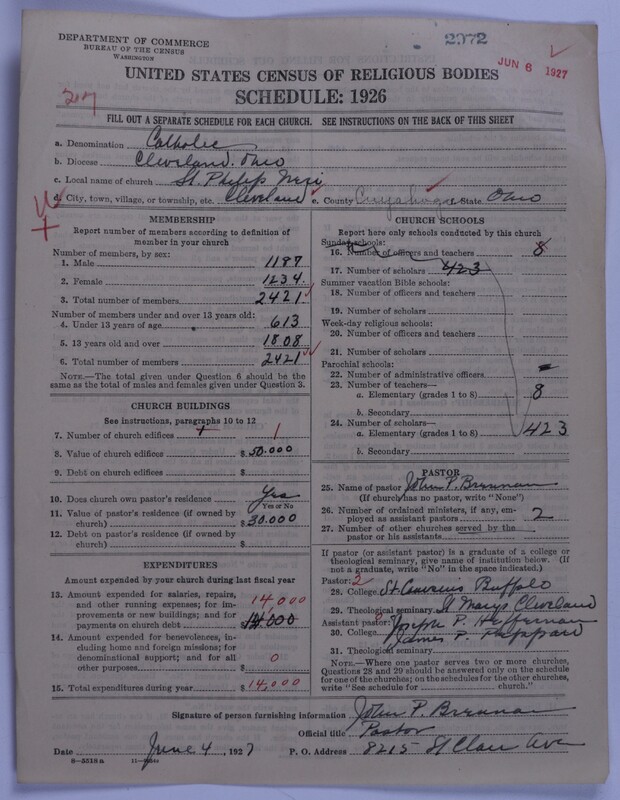 DEPARTMENT OF COMMERCE
BUREAU OF THE CENSUS
WASHINGTON
2972
JUN 8 1927
UNITED STATES CENSUS OF RELIGIOUS BODIES
SCHEDULE: 1926
217
FILL OUT A SEPARATE SCHEDULE FOR EACH CHURCH. SEE INSTRUCTIONS ON THE BACK OF THIS SHEET
a. Denomination Catholic
b. Diocese Cleveland. Ohio
c. Local name of church St. Philip Neri
d. City, town, village, or township, etc. Cleveland e. County Cuyahoga f. State Ohio
MEMBERSHIP
Report number of members according to definition of member in your church
Number of members, by sex:
1. Male 1187
2. Female 1234.
3. Total number of members 2421
Number of members under and over 13 years old:
4. Under 13 years of age 613
5. 13 years old and over 1808
6. Total number of members 2421
NOTE.—The total given under Question 6 should be the same as the total of males and females given under Question 3.
CHURCH BUILDINGS
See instructions, paragraphs 10 to 12
7. Number of church edifices 1
8. Value of church edifices $50.000
9. Debt on church edifices $
10. Does church own pastor's residence Yes
Yes or No
11. Value of pastor's residence (if owned by church) $30.000
12. Debt on pastor's residence (if owned by church) $
EXPENDITURES
Amount expended by your church during last fiscal year
13. Amount expended for salaries, repairs, and other running expenses; for improvements or new buildings; and for payments on church debt 14,000
$14,000
14. Amount expended for benevolences, including home and foreign missions; for denominational support; and for all other purposes 0 $
15. Total expenditures during year $14,000
CHURCH SCHOOLS
Report here only schools conducted by this church
Sunday schools:
16. Number of officers and teachers 8
17. Number of scholars 423
Summer vacation Bible schools:
18. Number of officers and teachers
19. Number of scholars
Week-day religious schools:
20. Number of officers and teachers
21. Number of scholars
Parochial schools:
22. Number of administrative officers
23. Number of teachers—
a. Elementary (grades 1 to 8) 8
b. Secondary
24. Number of scholars—
a. Elementary (grades 1 to 8) 423
b. Secondary
PASTOR
25. Name of pastor John P. Brennan
(If church has no pastor, write "None")
26. Number of ordained ministers, if any, employed as assistant pastors 2
27. Number of other churches served by the pastor or his assistants
If pastor (or assistant pastor) is a graduate of a college or theological seminary, give name of institution below. (If not a graduate, write "No" in the space indicated.)
Pastor: 2
28. College St Canisius Buffalo
29. Theological seminary St Marys Cleveland
Assistant pastor: Joseph P. Heffernan
30. College James P.
31. Theological seminary
NOTE.—Where one pastor serves two or more churches, Questions 28 and 29 should be answered only on the schedule for one of the churches; on the schedules for the other churches, write "See schedule for church."
Signature of person furnishing information John P. Brennan
Official title Pastor
Date June 4, 1927 P. O. Address 8215 St Clair Ave
8—5518 a